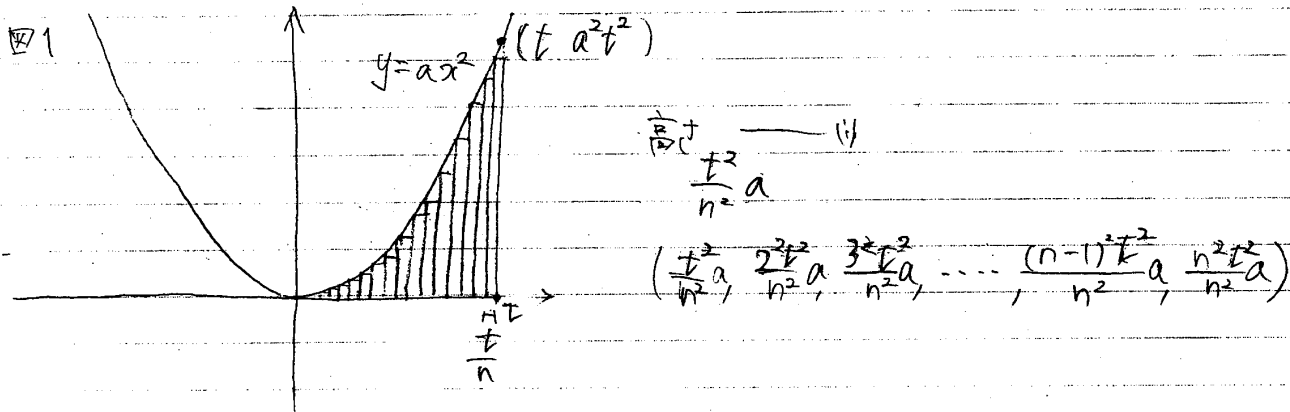 図1
(t a²t²)
y=ax²
高さ —— (i)
t²/n² a
(t²/n² a, 2²t²/n² a, 3²t²/n² a, ・・・・, (n-1)²t²/n² a, n²t²/n² a)
t
t/n